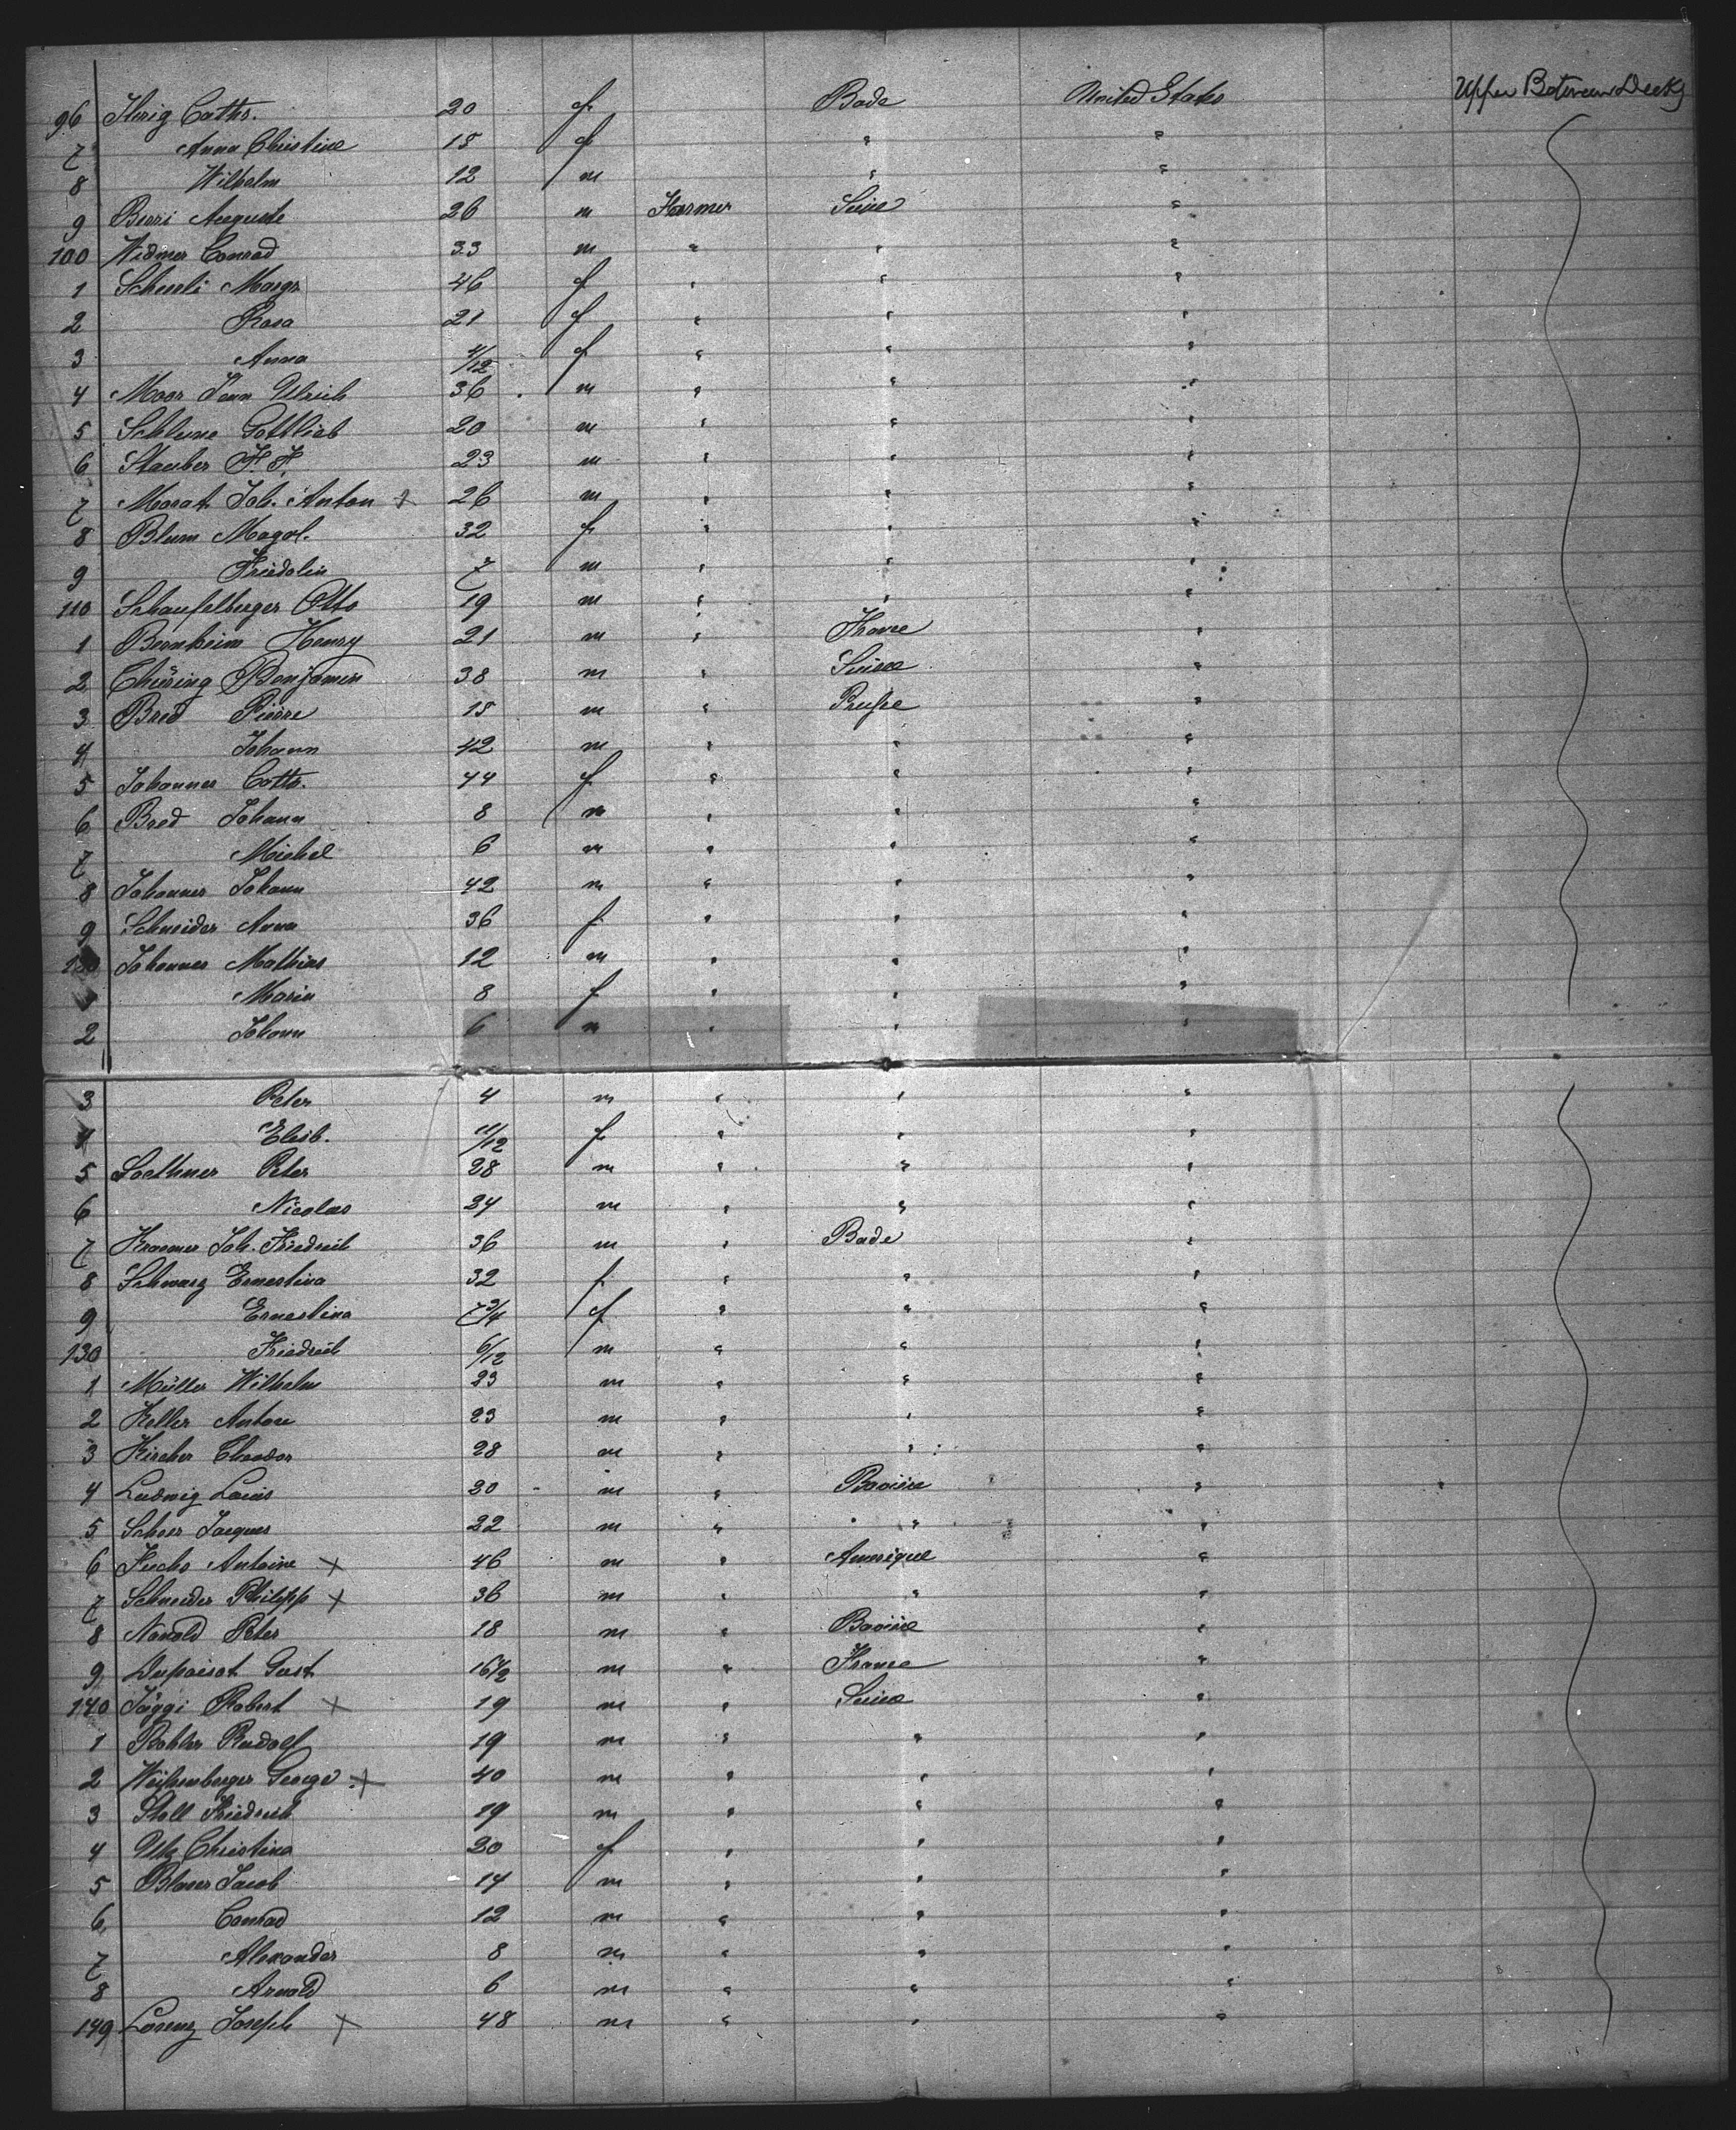 96 Ihrig Cath. 20 f Bade United States Upper Between Decks
7 Anna Christine 18 f " "
8 Wilhelm 12 m " "
9 Burri Auguste 26 m Farmer Suisse "
100 Widmer Conrad 33 m " " "
1 Scheurli Margr 46 f " " "
2 Rosa 21 f " " "
3 Anna 4/12 f " " "
4 Moor Ulrich 36 m " " "
5 Gottlieb 20 m " " "
6 Stauber 23 m " " "
7 Morat Joh. Anton + 26 m " " "
8 Blum Magd. 32 f " " "
9 Friedolin 7 m " " "
110 Schaufelberger Otto 19 m " " "
1 Bernheim Henry 21 m " France "
2 Thüring Benjamin 38 m " Suisse "
3 Bred Pierre 18 m " Prusse "
4 Johann 42 m " " "
5 Johannes Cath. 44 f " " "
6 Bred Johann 8 m " " "
7 Michel 6 m " " "
8 Johannes Johann 42 m " " "
9 Schneider Anna 36 f " " "
120 Johannes Mathias 12 m " " "
1 Maria 8 f " " "
2 Johann 6 m " " "
3 Peter 4 m " " "
4 Elisb. 11/12 f " " "
5 Peter 28 m " " "
6 Nicolas 24 m " " "
7 Kraemer Joh. Friedrich 36 m " Bade "
8 Schwarz Ernestina 32 f " " "
9 Ernestina 7 3/4 f " " "
130 Friedrich 6/12 m " " "
1 Müller Wilhelm 23 m " " "
2 Keller Anton 23 m " " "
3 Kircher Theodor 28 m " " "
4 Ludwig Louis 20 m " Bavière "
5 Scheer Jacques 22 m " " "
6 Fuchs Antoine + 46 m " Amerique "
7 Schneider Philipp + 36 m " " "
8 Peter 18 m " Bavière "
9 Gust 16 1/2 m " France "
140 Jäggi Robert + 19 m " Suisse "
1 Rudolf 19 m " " "
2 Weissenberger George + 40 m " " "
3 Stoll Friedrich 19 m " " "
4 Utz Christina 20 f " " "
5 Blaser Jacob 14 m " " "
6 Conrad 12 m " " "
7 Alexander 8 m " " "
8 Arnold 6 m " " "
149 Lorenz Joseph + 48 m " " "